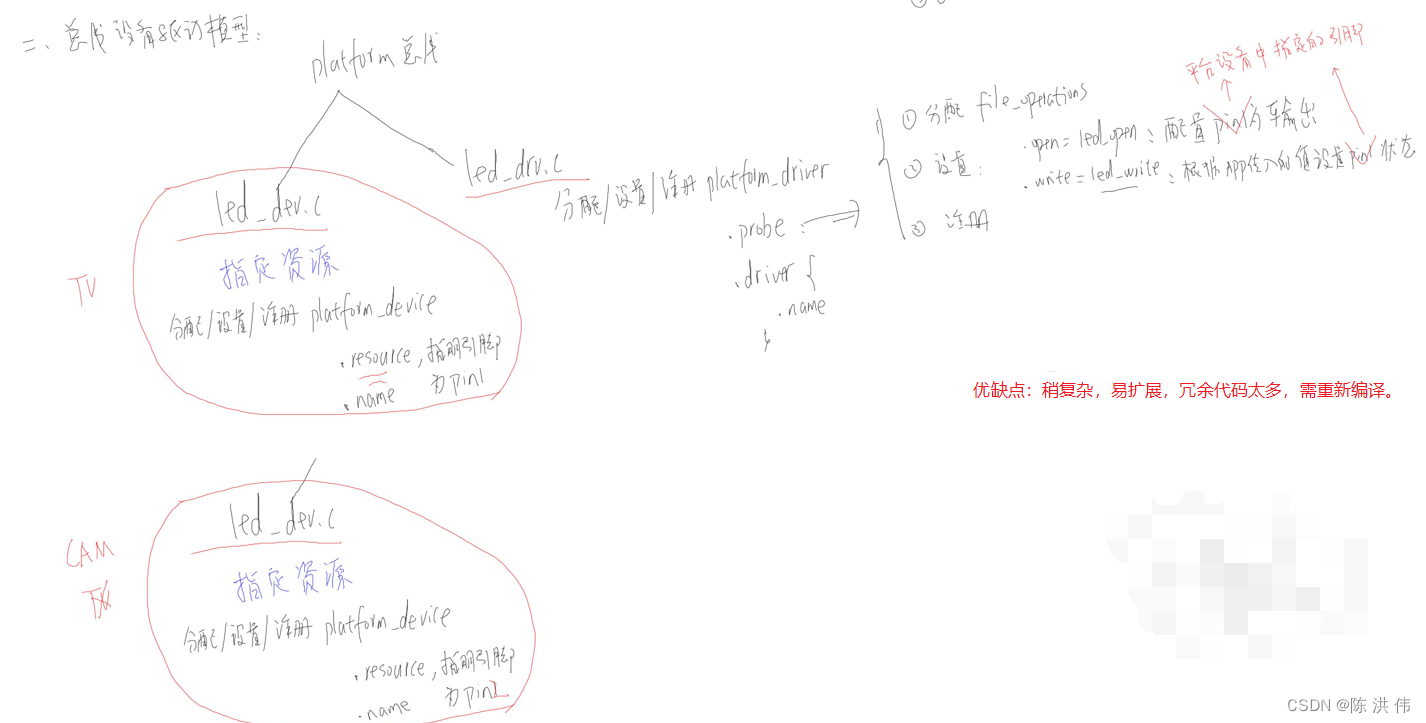 二、总线设备驱动模型:
platform 总线
led_drv.c
分配/设置/注册 platform_driver
.probe
.driver {
.name
}
① 分配 file_operations
② 设置:
.open = led_open: 配置pin1为输出
.write = led_write: 根据APP传入的值设置pin1状态
③ 注册
平台设备中指定的引脚
TV
led_dev.c
指定资源
分配/设置/注册 platform_device
.resource,指明引脚
为pin1
.name
优缺点:稍复杂,易扩展,冗余代码太多,需重新编译。
CAM
TV
led_dev.c
指定资源
分配/设置/注册 platform_device
.resource,指明引脚
为pin2
.name
CSDN @陈 洪 伟